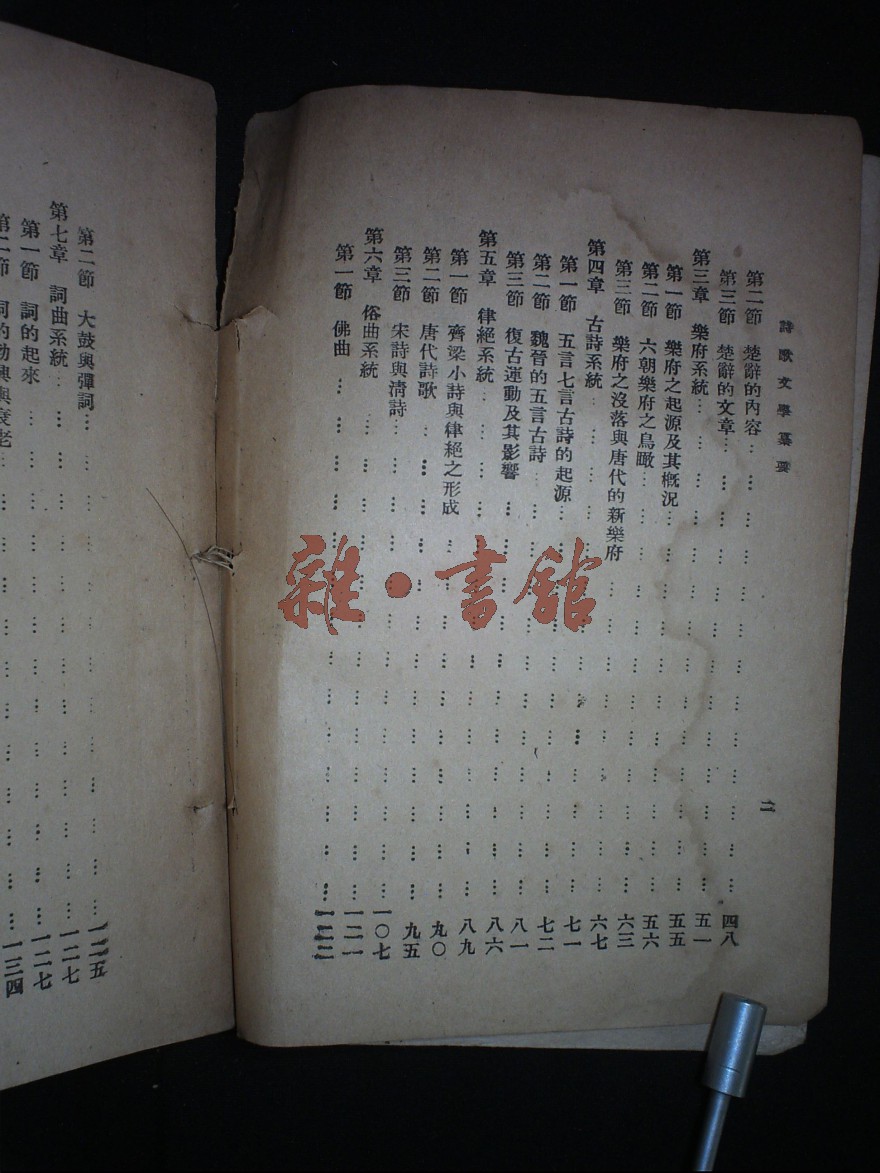 詩歌文學纂要
二
第二節 楚辭的內容……四八
第三節 楚辭的文章……五一
第三章 樂府系統……五五
第一節 樂府之起源及其概況……五六
第二節 六朝樂府之鳥瞰……六三
第三節 樂府之沒落與唐代的新樂府……六七
第四章 古詩系統……七一
第一節 五言七言古詩的起源……七二
第二節 魏晉的五言古詩……八一
第三節 復古運動及其影響……八六
第五章 律絕系統……八九
第一節 齊梁小詩與律絕之形成……九〇
第二節 唐代詩歌……九五
第三節 宋詩與清詩……一〇七
第六章 俗曲系統……一二一
第一節 佛曲……一二二
第二節 大鼓與彈詞……一二五
第七章 詞曲系統……一二七
第一節 詞的起來……一二七
第二節 詞的勃興與衰老……一三四
雜·書館